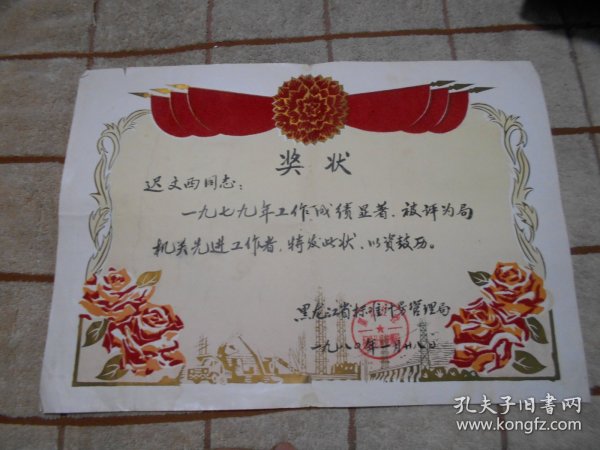 奖状
迟文西同志：
一九七九年工作成绩显著，被评为局
机关先进工作者，特发此状，以资鼓历。
黑龙江省标准计量管理局
一九八〇年一月廿八日
孔夫子旧书网
www.kongfz.com